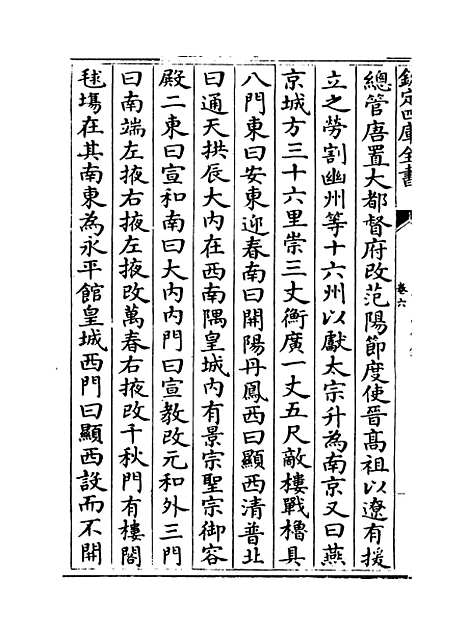 欽定四庫全書
卷六
總管唐置大都督府改范陽節度使晉髙祖以遼有援
立之勞割幽州等十六州以獻太宗升為南京又曰燕
京城方三十六里崇三丈衡廣一丈五尺敵樓戰櫓具
八門東曰安東迎春南曰開陽丹鳳西曰顯西清晉北
曰通天拱辰大内在西南隅皇城内有景宗聖宗御容
殿二東曰宣和南曰大内内門曰宣教改元和外三門
曰南端左掖右掖左掖改萬春右掖改千秋門有樓閣
毬塲在其南東為永平館皇城西門曰顯西設而不開